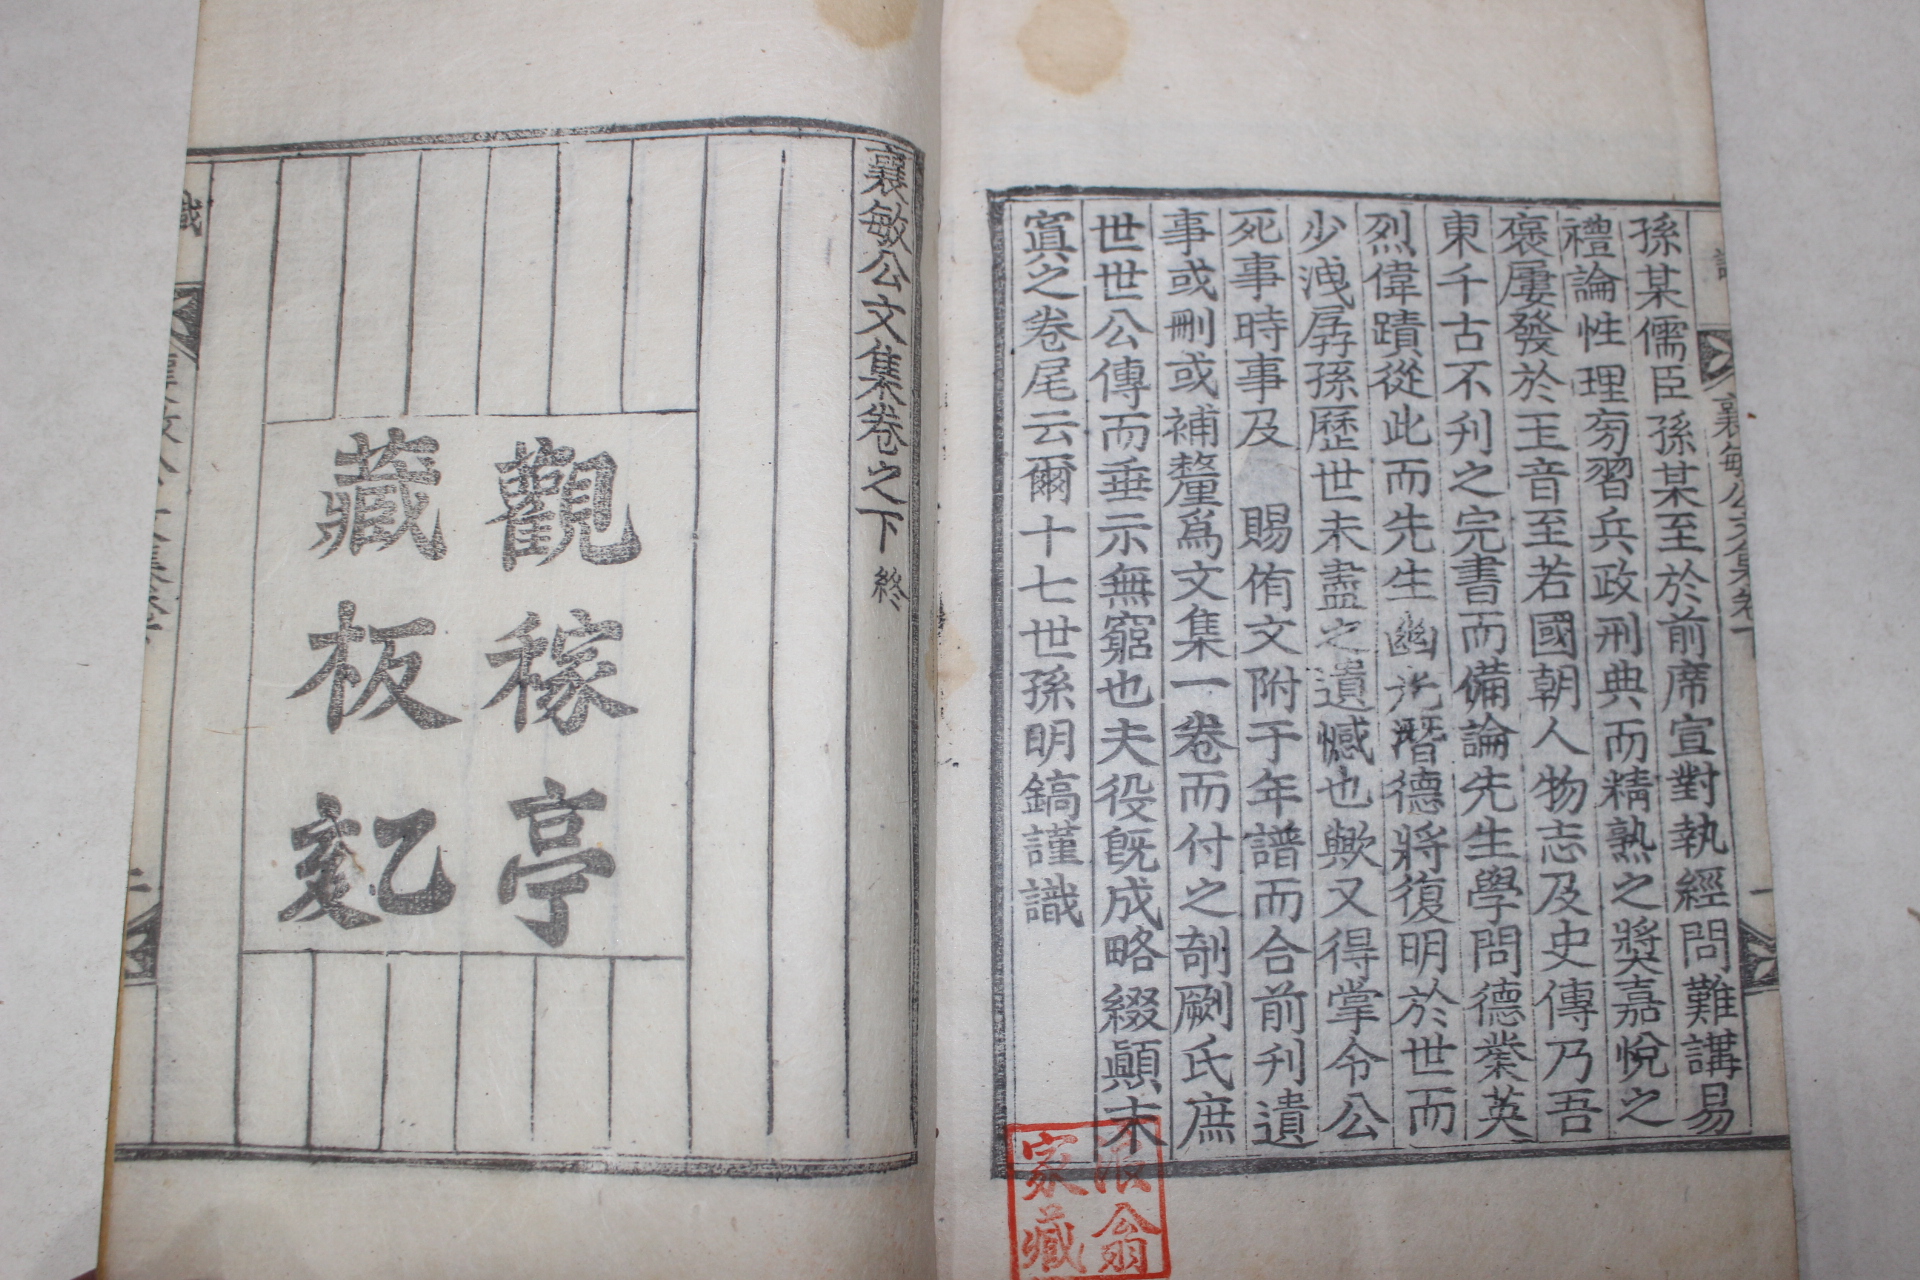 孫某儒臣孫某至於前席宣對執經問難講易
禮論性理旁習兵政刑典而精熟之奬嘉悅之
褒屢發於玉音至若國朝人物志及史傳乃吾
東千古不刋之完書而備論先生學問德業英
烈偉蹟從此而先生幽光潛德將復明於世而
少洩孱孫歷世未盡之遺憾也歟又得掌令公
死事時事及 賜侑文附于年譜而合前刋遺
事或刪或補釐爲文集一卷而付之剞劂氏庶
世世公傳而垂示無窮也夫役旣成略綴顚末
寘之卷尾云爾十七世孫明鎬謹識
家藏
襄敏公文集卷之下 終
觀稼亭
藏板
乙亥刻